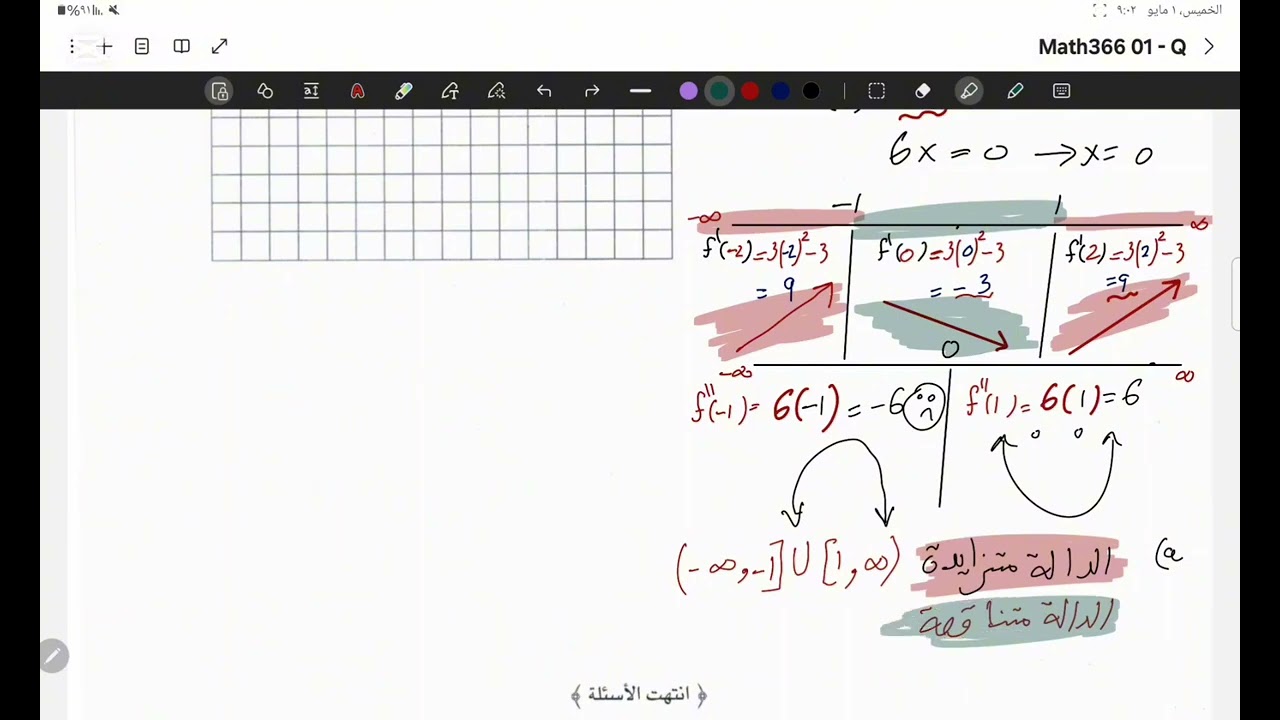 الخميس، ١ مايو ٩:٠٢
%٩١
Math366 01 - Q
6x = 0 → x = 0
-∞ -1 1 ∞
f'(-2)=3(-2)²-3
= 9
f'(0)=3(0)²-3
= -3
f'(2)=3(2)²-3
=9
-∞ 0 ∞
f''(-1)= 6(-1) = -6
f''(1)= 6(1)=6
(a الدالة متزايدة (-∞,-1]U[1,∞)
الدالة متناقصة
﴿ انتهت الأسئلة ﴾